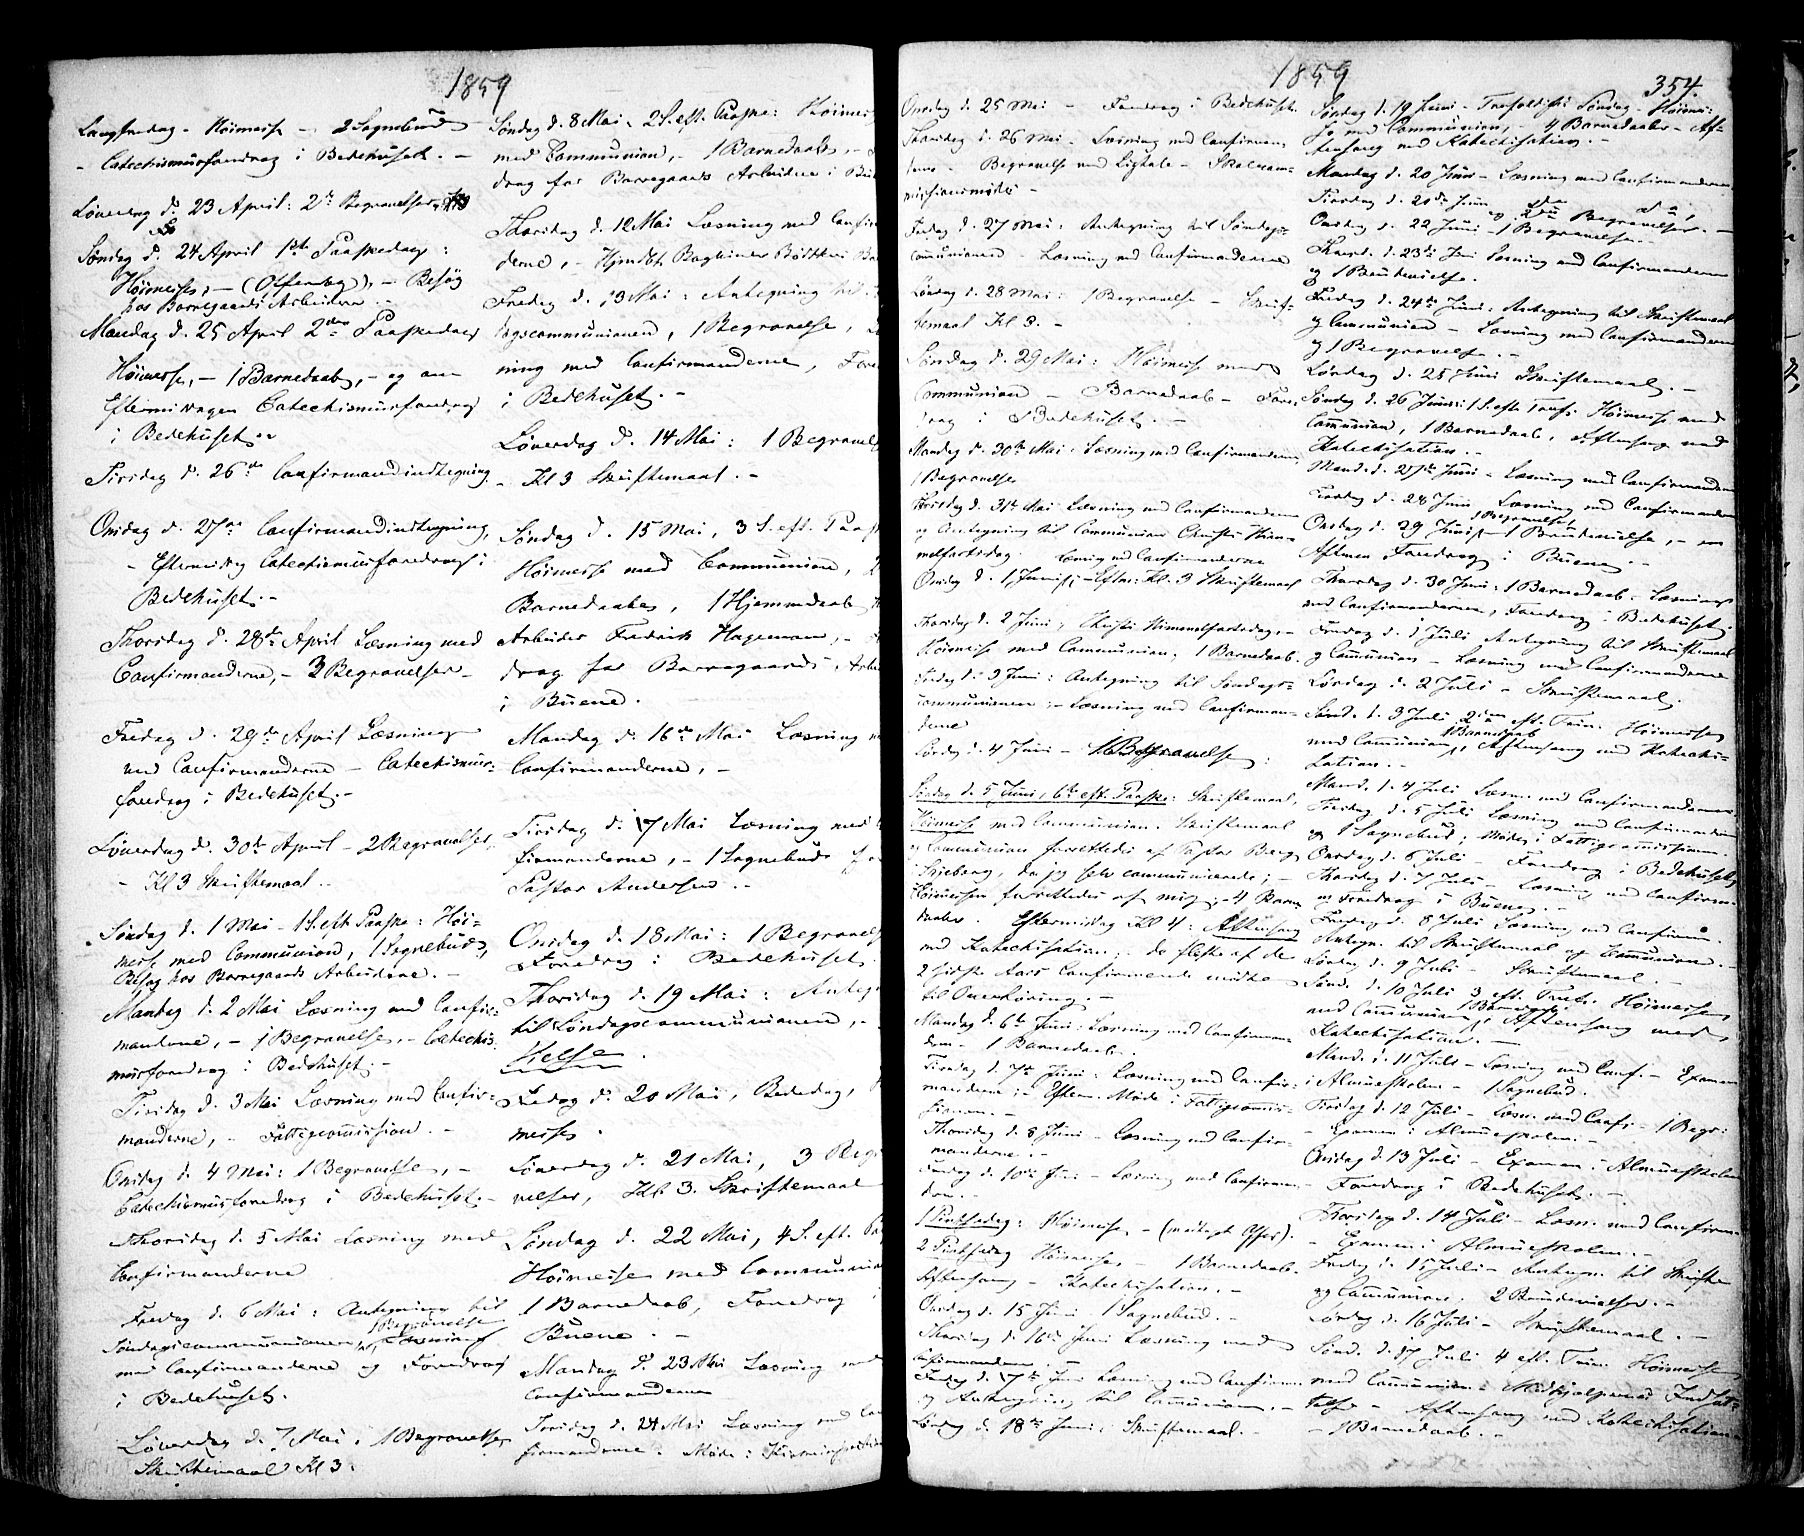 1859
Langfredag - Høimesse - 2 Sognebud
- Catechismusforedrag i Bedehuset. -
Løverdag d. 23 April: 2de Begravelser,
Søndag d. 24 April 1ste Paaskedag:
Høimesse, - (Offerdag), - Besøg
hos Borregaards Arbeidere. -
Mandag d. 25 April 2den Paaskedag
Høimesse, - 1 Barnedaab, - og om
Eftermidagen Catechismusforedrag
i Bedehuset. -
Tirsdag d. 26de Confirmandindtegning.
Onsdag d. 27de Confirmandindtegning,
- Eftermidag Catechismusforedrag i
Bedehuset. -
Thorsdag d. 28de April Læsning med
Confirmanderne, - 3 Begravelser -
Fredag d. 29de April Læsning
med Confirmanderne - Catechismus-
foredrag i Bedehuset. -
Løverdag d. 30te April - 2 Begravelser,
- Kl 3 Skriftemaal. -
Søndag d. 1 Mai - 1 S. eft. Paaske: Høi-
messe med Communion, 1 Sognebud,
Besøg hos Borregaards Arbeidere. -
Mandag d. 2 Mai Læsning med Confir-
manderne, - 1 Begravelse, - Catechis-
musforedrag i Bedehuset. -
Tirsdag d. 3 Mai Læsning med Confir-
manderne, - Fattigcommission. -
Onsdag d. 4 Mai: 1 Begravelse, -
Catechismusforedrag i Bedehuset. -
Thorsdag d. 5 Mai Læsning med
Confirmanderne
Fredag d. 6 Mai: Antegning til
1 Begravelse
Søndagscommunionen, Læsning
med Confirmanderne og Foredrag
i Bedehuset.
Løverdag d. 7 Mai, 1 Begravelse
Skriftemaal Kl 3.
Søndag d. 8 Mai, 2 S. eft. Paaske: Høimes
med Communion, - 1 Barnedaab, -
drag for Borregaards Arbeidere i
Thorsdag d. 12 Mai Læsning med Confir
derne, -
Fredag d. 13 Mai: Antegning til
dagscommunionen, 1 Begravelse,
ning med Confirmanderne, Fore
i Bedehuset. -
Løverdag d. 14 Mai: 1 Begravel
- Kl 3 Skriftemaal. -
Søndag d. 15 Mai, 3 S. eft. Paask
Høimesse med Communion, 2
Barnedaabe, 1 Hjemmedaab
Arbeider Fredrik Hagemann, -
drag for Borregaards Arbei
i Buene.
Mandag d. 16de Mai Læsning
Confirmanderne, -
Tirsdag d. 17 Mai Læsning med
firmanderne, - 1 Sognebud
Pastor Andersen. -
Onsdag d. 18 Mai: 1 Begravel
Foredrag i Bedehuset.
Thorsdag d. 19 Mai: Anteg
til Søndagscommunionen, -
Helse.
Fredag d. 20 Mai, Bededag,
messe.
Løverdag d. 21 Mai, 3 Begra
velser, Kl. 3. Skriftemaal
Søndag d. 22 Mai, 4 S. eft. Pa
Høimesse med Communion
1 Barnedaab, Foredrag i
Buene. -
Mandag d. 23 Mai Læsning med
Confirmanderne
Tirsdag d. 24 Mai Læsning med Con
firmanderne. Møde i
1859
354.
Onsdag d. 25 Mai - Foredrag i Bedehuset.
Thorsdag d. 26 Mai - Læsning med Confirman-
derne - Begravelse med Ligtale - Skolecom-
missionsmøde -
Fredag d. 27 Mai: Antegning til Søndags-
communionen - Læsning med Confirmanderne
Løverdag d. 28 Mai: 1 Begravelse - Skrif-
temaal Kl 3. -
Søndag d. 29 Mai: Høimesse med
Communion - Barnedaab - Fore-
drag i Bedehuset. -
Mandag d. 30te Mai: Læsning med Confirmanderne,
1 Begravelse
Tirsdag d. 31te Mai Læsning med Confirmanderne
og Antegning til Communion Christi Him-
melfartsdag.
Onsdag d. 1 Juni: - Efterm. Kl. 3 Skriftemaal
Thorsdag d. 2 Juni, Christi Himmelfartsdag, -
Høimesse med Communion, 1 Barnedaab.
Fredag d. 3 Juni: Antegning til Søndags-
communionen - Læsning med Confirman-
derne
Lørdag d. 4 Juni - 1 Begravelse.
Søndag d. 5 Juni, 6te eft. Paaske: Skriftemaal,
Høimesse med Communion. Skriftemaal
og Communion forrettedes af Pastor Berg
i Skjeberg, da jeg selv communicerede; -
Høimessen forrettedes af mig; - 4 Barne-
daabe. Eftermidag Kl 4: Aftensang
med Katechisation; - de fleste af de
2 sidste Aars Confirmerede mødte
til Overhøring. -
Mandag d. 6te Juni. Læsning med Confirman-
derne - 1 Barnedaab.
Tirsdag d. 7de Juni: Læsning med Confir-
manderne, - Efterm. Møde i Fattigcommis-
sionen. -
Thorsdag d. 8 Juni - Læsning med Confir-
manderne. -
Fredag d. 10de Juni - Læsning med Confirman-
derne. -
1 Pintsedag: Høimesse - (modtaget Offer). -
2 Pintsedag Høimesse - 1 Barnedaab.
Aftensang - Katechisation. -
Onsdag d. 15 Juni 1 Sognebud. -
Thorsdag d. 16de Juni Læsning med
Confirmanderne. -
Fredag d. 17de Juni Læsning med Confirman.
og Antegning til Communion. -
Lørdag d. 18de Juni: Skriftemaal. -
Søndag d. 19 Juni - Trefoldigheds Søndag - Høimes-
se med Communion, - 4 Barnedaabe - Af-
tensang med Katechisation. -
Mandag d. 20 Juni - Læsning med Confirmanderne
Tirsdag d. 21de Juni
Onsdag d. 22 Juni - 1 Begravelse. -
Thorsd. d. 23de Juni Læsning med Confirmanderne
og 1 Brudevielse.
Fredag d. 24de Juni: Antegning til Skriftemaal
og Communion - Læsning med Confirmanderne
og 1 Begravelse. -
Lørdag d. 25 Juni Skriftemaal. -
Søndag d. 26 Juni: 1 S. eft. Tref: Høimesse med
Communion, 1 Barnedaab, Aftensang med
Katechisation. -
Mand. d. 27de Juni - Læsning med Confirmanderne
Tirsdag d. 28 Juni Læsning med Confirmanderne
1 Begravelse
Onsdag d. 29 Juni - 1 Brudevielse, - om
Aftenen Foredrag i Buene. -
Thorsdag d. 30 Juni: 1 Barnedaab - Læsning
med Confirmanderne, Foredrag i Bedehuset.
Fredag d. 1 Juli Antegning til Skriftemaal
og Communion - Læsning med Confirmanderne
Lørdag d. 2 Juli - Skriftemaal.
Sønd. d. 3 Juli 2den eft. Trin. Høimesse
1 Barnedaab
med Communion, Aftensang med Katechi-
sation. -
Mand. d. 4 Juli Læsn. med Confirmanderne
Tirsdag d. 5 Juli Læsning med Confirmanderne
og 1 Sognebud; Møde i Fattigcommissionen.
Onsdag d. 6 Juli - Foredrag i Bedehuset
Thorsdag d. 7 Juli - Læsning med Confirm.
og Foredrag i Buene. -
Fredag d. 8 Juli Læsning med Confirm.
Antegn. til Skriftemaal og Communion. -
Lørdag d. 9 Juli - Skriftemaal. -
Sønd. d. 10 Juli 3 eft. Tref. Høimesse
1 Barnedaab
med Communion, Aftensang med
Katechisation. -
Mand. d. 11 Juli - Læsning med Conf. - Examen
i Almueskolen - 1 Sognebud.
Tirsdag d. 12 Juli - Læsn. med Conf. - 1 Begr.
- Examen i Almueskolen. -
Onsdag d. 13 Juli - Examen i Almueskolen
- Foredrag i Bedehuset. -
Thorsdag d. 14 Juli - Læsn. med Confirm.
- Examen i Almueskolen. -
Fredag d. 15 Juli - Antegn. til Skrifte
og Communion. 2 Brudevielser. -
Lørdag d. 16 Juli - Skriftemaal. -
Sønd. d. 17 Juli 4 eft. Trin. Høimesse
med Communion - Medhjælpernes Indsæt-
telse - Aftensang med Katechisation
- 1 Barnedaab. -